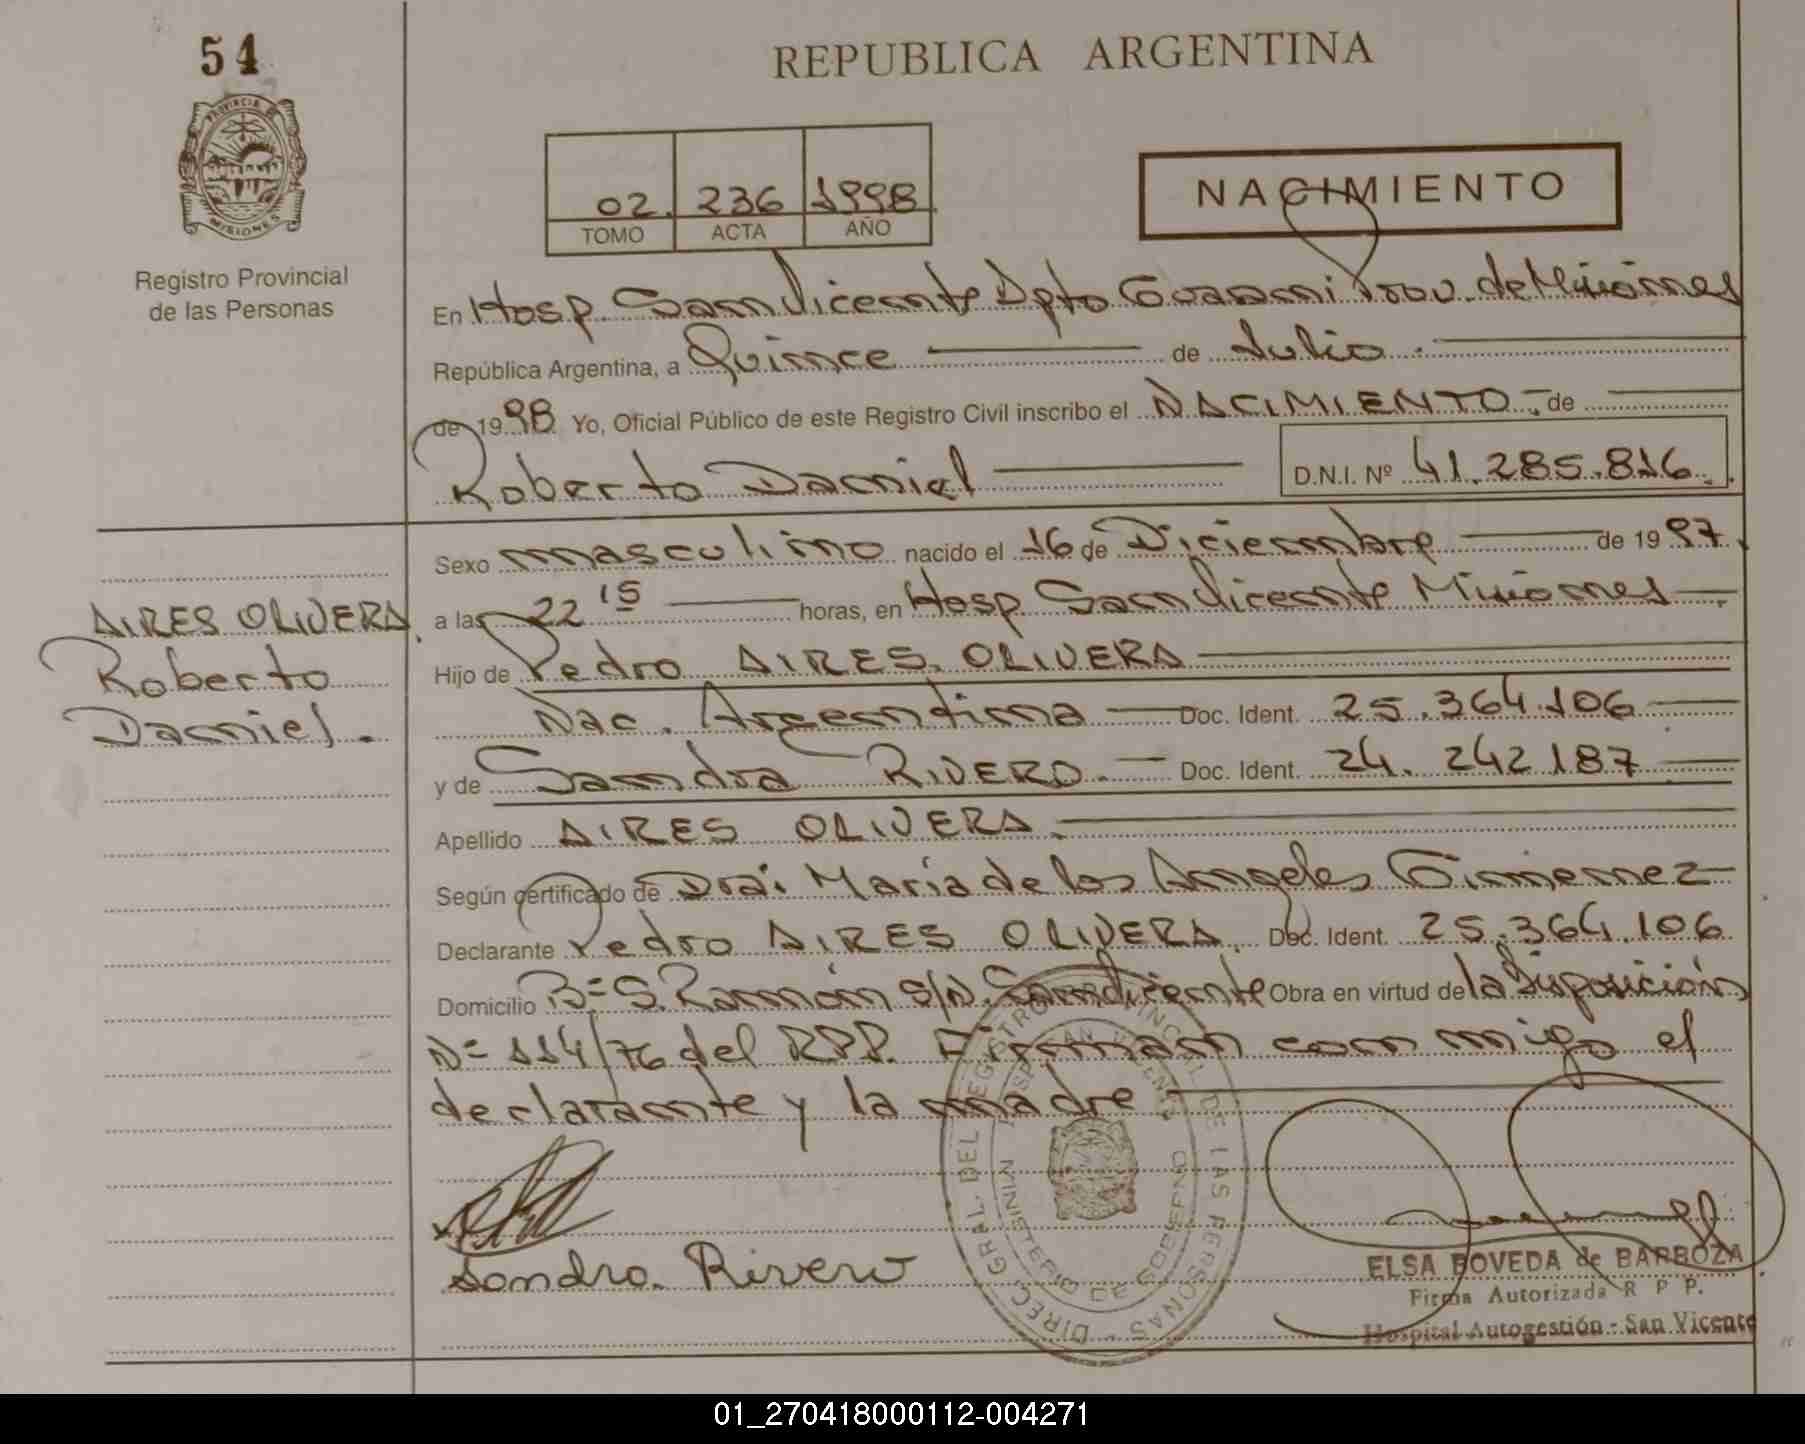 54
REPUBLICA ARGENTINA
PROVINCIA DE
MISIONES
Registro Provincial
de las Personas
02 236 1998
TOMO ACTA AÑO
NACIMIENTO
En Hosp. San Vicente Dpto Guarani Prov. de Misiones
República Argentina, a Quince de Julio
de 1998 Yo, Oficial Público de este Registro Civil inscribo el NACIMIENTO de
Roberto Daniel D.N.I. Nº 41.285.816
Sexo masculino nacido el 16 de Diciembre de 1997
a las 22 15 horas, en Hosp San Vicente Misiones
AIRES OLIVERA
Roberto
Daniel.
Hijo de Pedro AIRES OLIVERA
Nac. Argentina Doc. Ident. 25.364.106
y de Sandra RIVERO. Doc. Ident. 24.242.187
Apellido AIRES OLIVERA.
Según certificado de Dra. Maria de los Angeles Gimenez
Declarante Pedro AIRES OLIVERA. Doc. Ident. 25.364.106
Domicilio Bº S. Ramón s/n. San Vicente Obra en virtud de la Disposición
Nº 114/76 del RPP. Firman con migo el
declarante y la madre
DIREC. GRAL. DEL REGISTRO PROVINCIAL DE LAS PERSONAS
HOSP. SAN VICENTE
MINISTERIO DE GOBIERNO
MISIONES
Sandra Rivero
ELSA BOVEDA de BARBOZA
Firma Autorizada R P P.
Hospital Autogestión - San Vicente
01_270418000112-004271